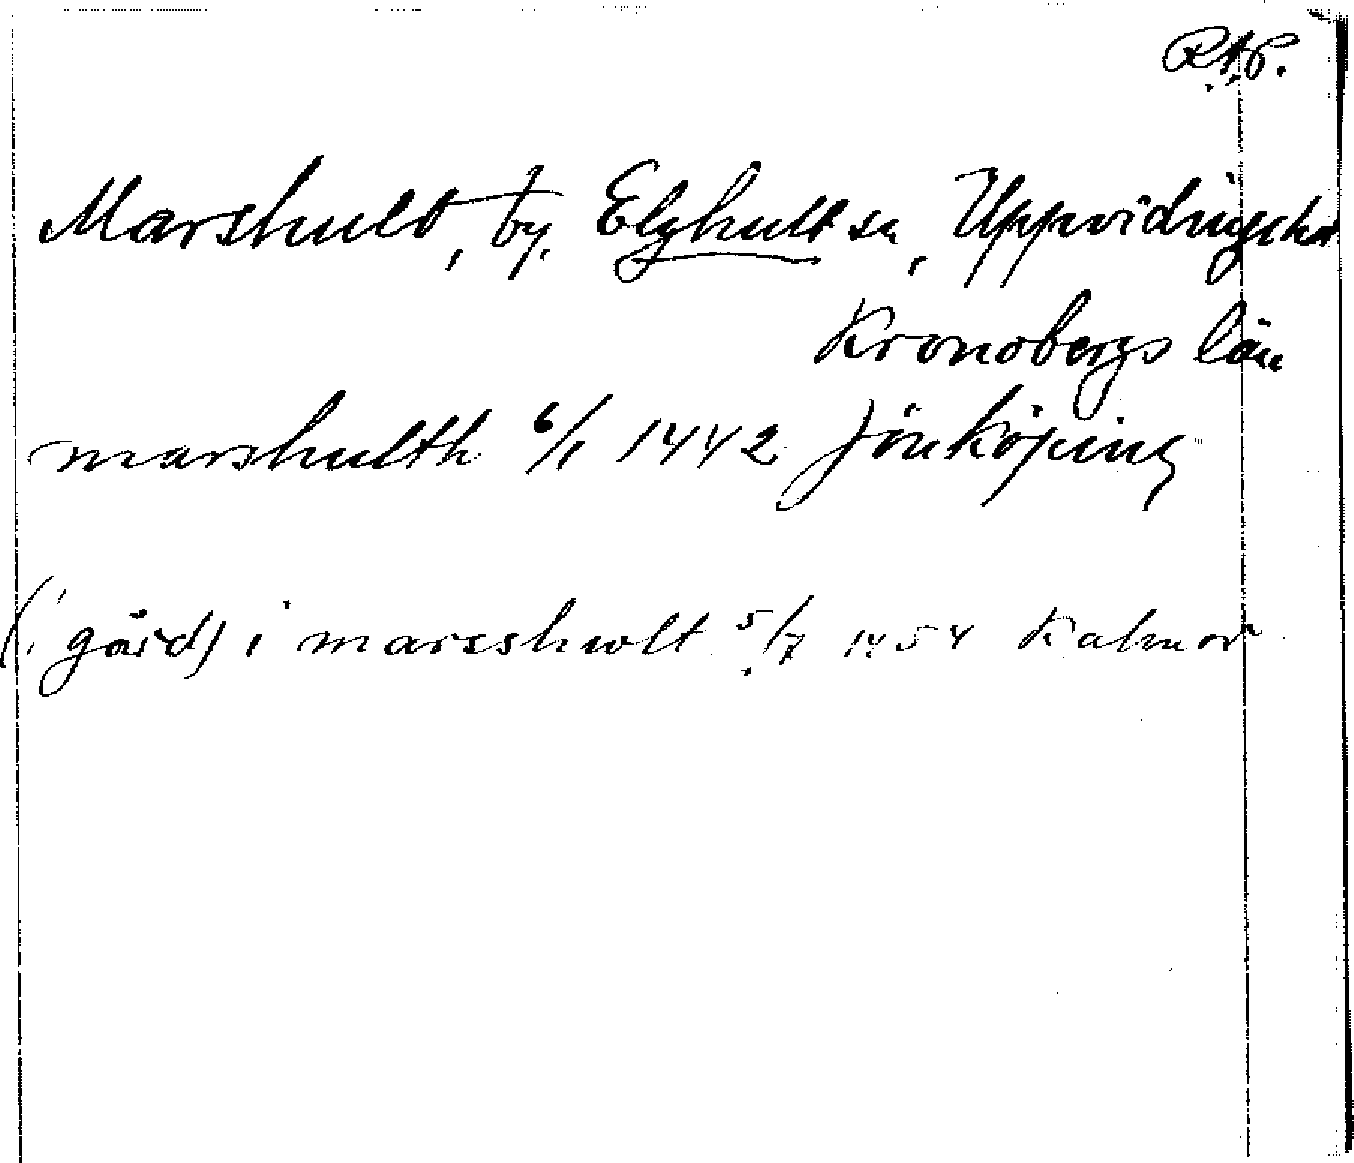 R.A.P.
Marshult, by, Elghult sn, Uppvidingehd
Kronobergs län
marshulth 6/1 1442 Jönköping
(i gård) i marsshwlt 5/7 1454 Kalmar